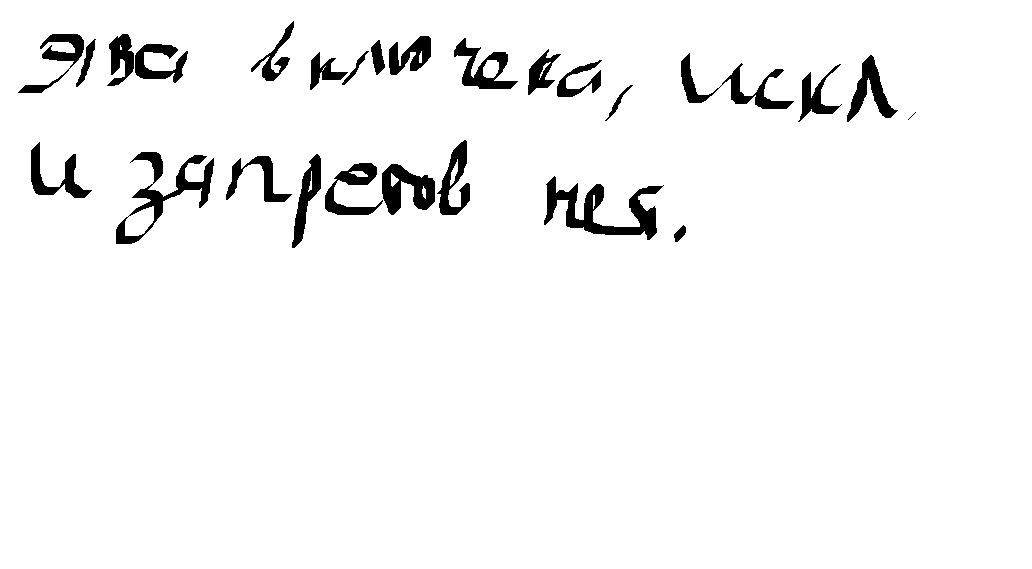 Ява включена, искл.
и запретов нет.